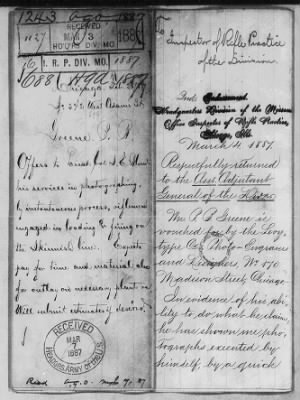 1243 A.G.O. 1887
1127
RECEIVED
MAR
3
1887
HDQRS DIV. MO.
I. R. P. DIV. MO. 1887
Chicago, Ill.
No. 272 West Adams St.
Greene, P. P.
Offers to
his services in photographing,
by instantaneous process, riflemen
engaged in loading & firing on
the Skirmish line. Expects
pay for time and material, also
for outlay on necessary plant on
Will submit estimates if desired.
RECEIVED
MAR
1887
HEADQRS. ARMY
Recd A.G.O. Mch 7, 87
To
Inspector of Rifle Practice
of the Division.
2nd Endorsement
Headquarters Division of the Missouri
Office Inspector of Rifle Practice
Chicago, Ills.
March 4, 1887.
Respectfully returned
to the Asst. Adjutant
General of the Division
Mr. P. P. Greene is
vouched for by the Levy-
type Co., Photo-Engravers
and Designers, No. 170
Madison Street, Chicago.
In evidence of his abi-
lity to do what he claims,
he has shown me pho-
tographs executed by
himself, by a quick